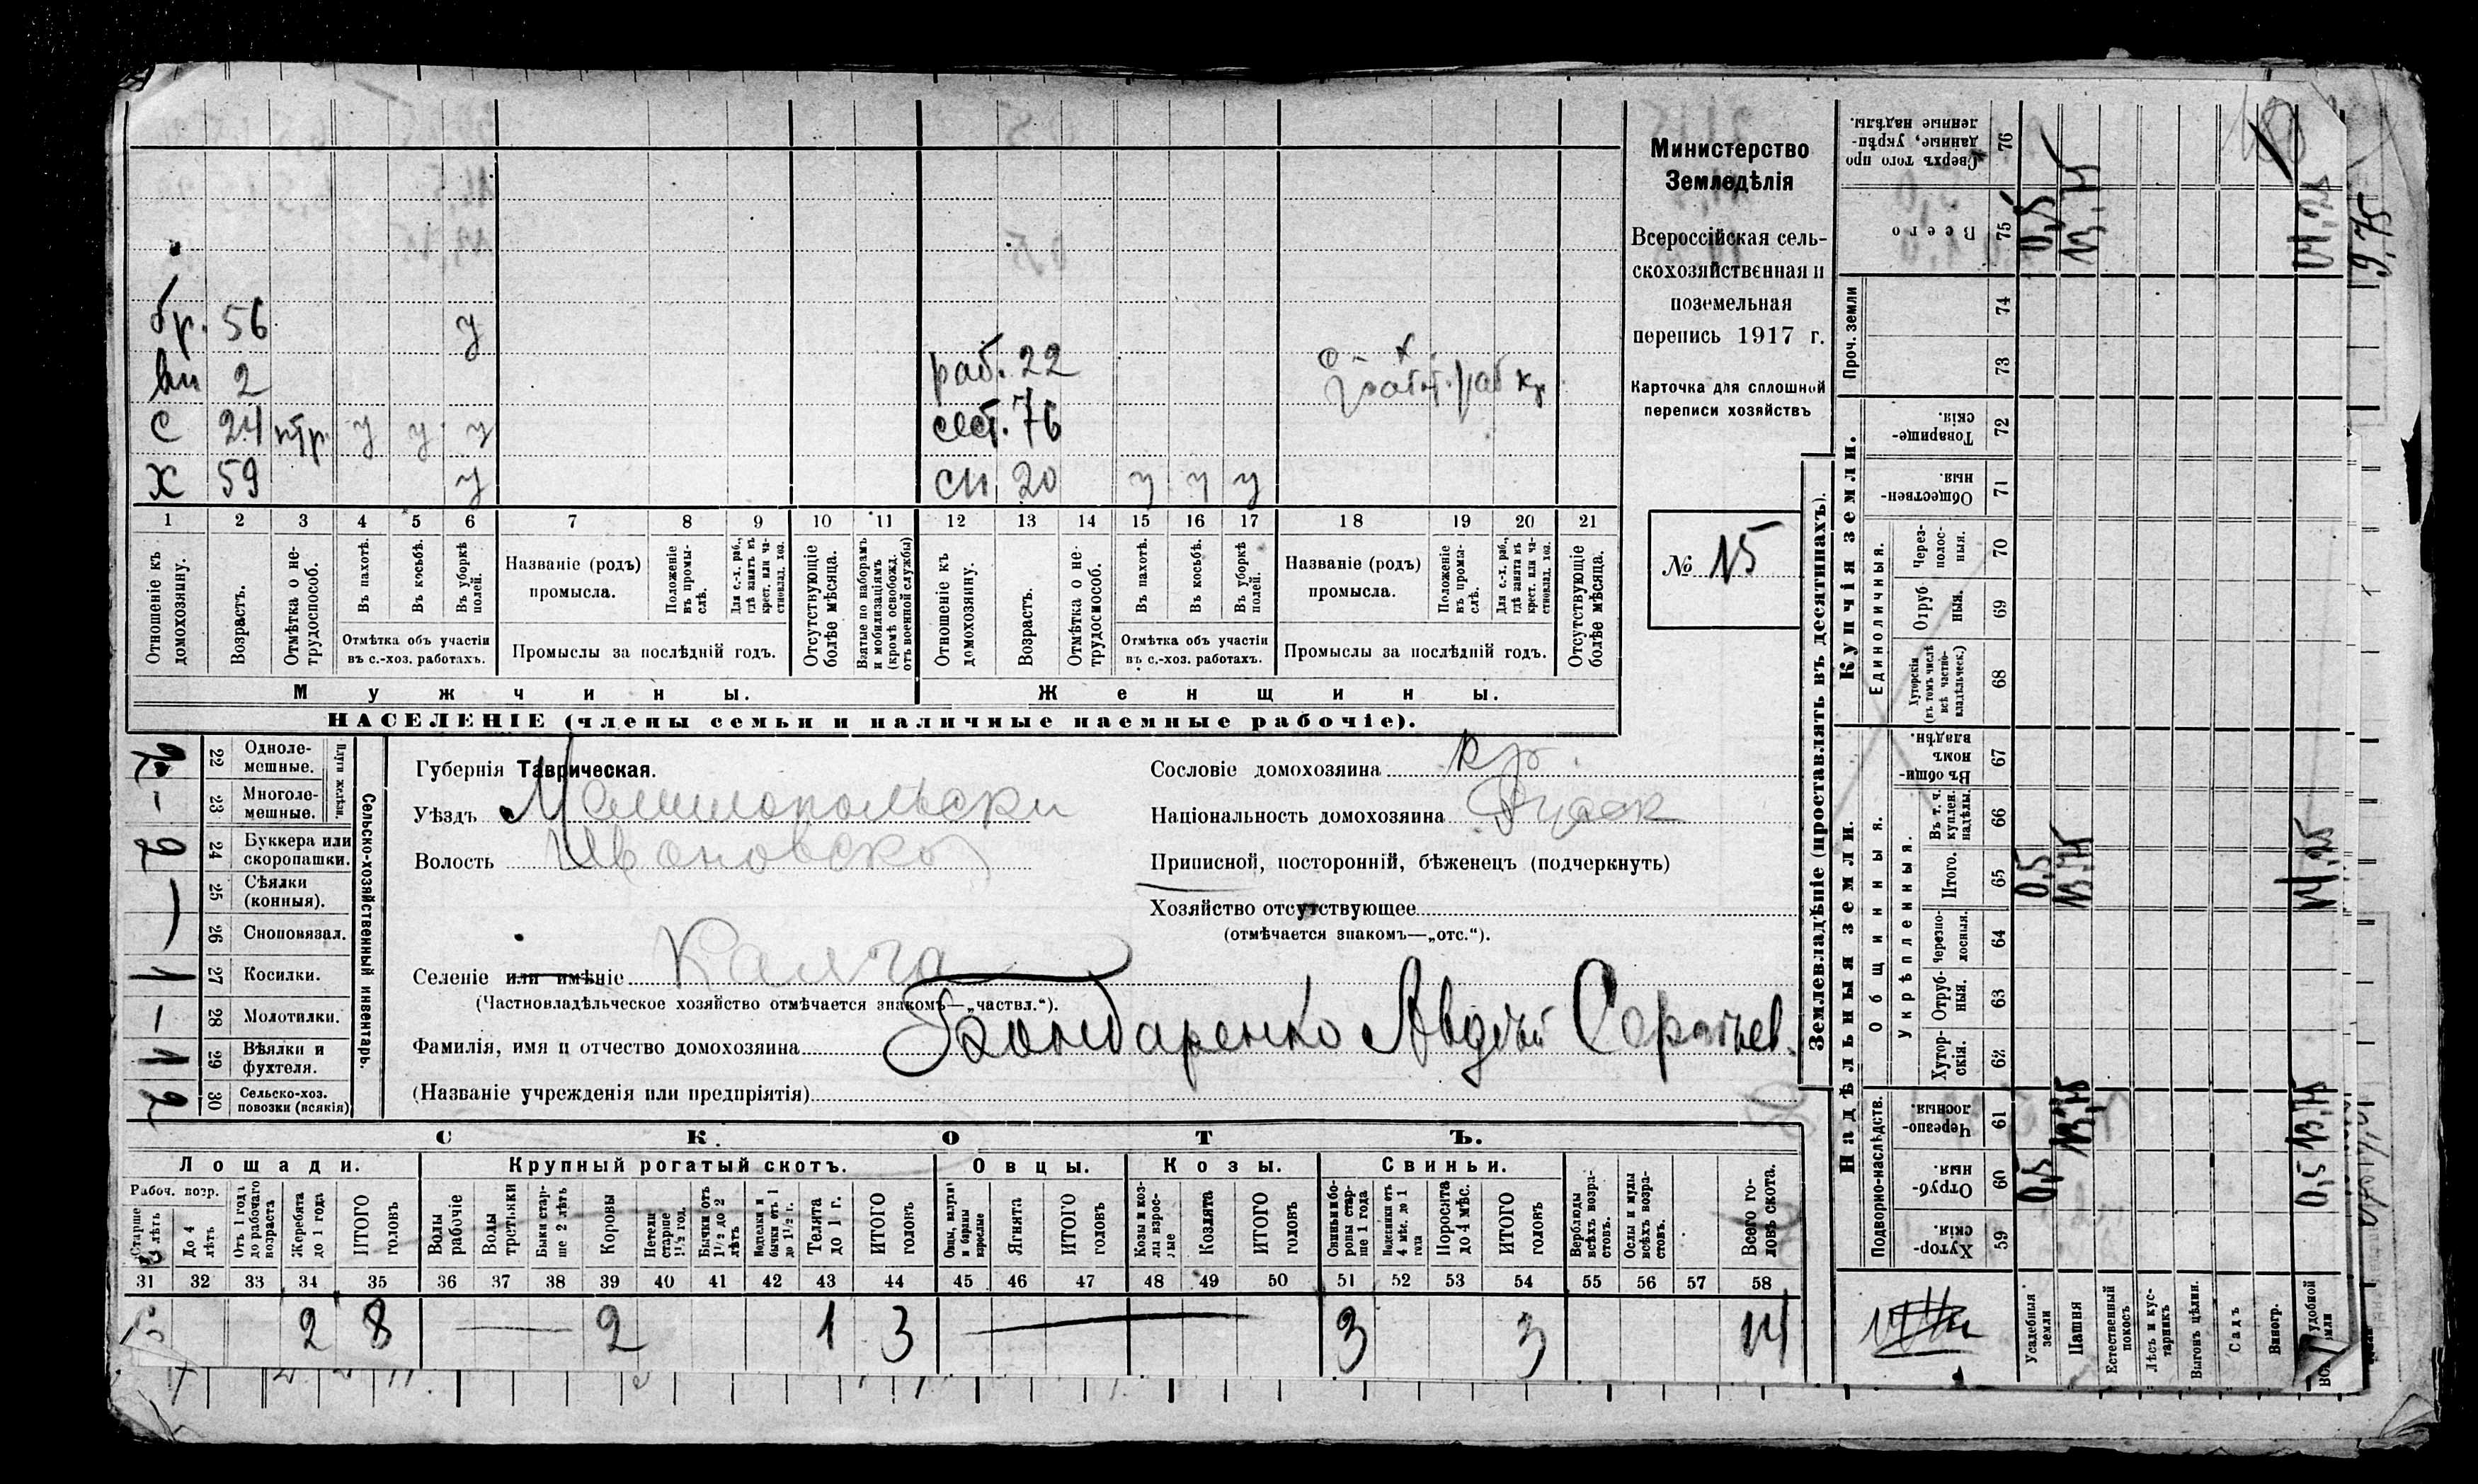 бр. 56 у
вн 2 раб. 22
с 24 нтр. у у у сест. 76
х 59 у сн 20 у у у
1 2 3 4 5 6 7 8 9 10 11 12 13 14 15 16 17 18 19 20 21
Отношеніе къ домохозяину.
Возрастъ.
Отмѣтка о нетрудоспособ.
Въ пахотѣ.
Въ косьбѣ.
Въ уборкѣ полей.
Отмѣтка объ участіи въ с.-хоз. работахъ.
Названіе (родъ) промысла.
Положеніе въ промыслѣ.
Для с.-х. раб., гдѣ занятъ въ крест. или частновлад. хоз.
Промыслы за послѣдній годъ.
Отсутствующіе болѣе мѣсяца.
Взятые по наборамъ и мобилизаціямъ (кромѣ освобожд. отъ военной службы)
Отношеніе къ домохозяину.
Возрастъ.
Отмѣтка о нетрудоспособ.
Въ пахотѣ.
Въ косьбѣ.
Въ уборкѣ полей.
Отмѣтка объ участіи въ с.-хоз. работахъ.
Названіе (родъ) промысла.
Положеніе въ промыслѣ.
Для с.-х. раб., гдѣ занята въ крест. или частновлад. хоз.
Промыслы за послѣдній годъ.
Отсутствующіе болѣе мѣсяца.
Мужчины. Женщины.
НАСЕЛЕНІЕ (члены семьи и наличные наемные рабочіе).
Министерство
Земледѣлія
Всероссійская сель-
скохозяйственная и
поземельная
перепись 1917 г.
Карточка для сплошной
переписи хозяйствъ
№ 15
Сельско-хозяйственный инвентарь.
Плуги желѣзн.
2 22 Однолемешные.
– 23 Многолемешные.
2 24 Буккера или скоропашки.
25 Сѣялки (конныя).
26 Сноповязал.
1 27 Косилки.
– 28 Молотилки.
1 29 Вѣялки и фухтеля.
2 30 Сельско-хоз. повозки (всякія)
Губернія Таврическая.
Уѣздъ Мелитопольски
Волость Ивановско
Селеніе или имѣніе Калга
(Частновладѣльческое хозяйство отмѣчается знакомъ—„частвл.“).
Фамилія, имя и отчество домохозяина Бондаренко Авдѣй Сергѣев.
(Названіе учрежденія или предпріятія)
Сословіе домохозяина кр.
Національность домохозяина Русск
Приписной, посторонній, бѣженецъ (подчеркнуть)
Хозяйство отсутствующее
(отмѣчается знакомъ—„отс.“).
СКОТЪ.
Лошади. Крупный рогатый скотъ. Овцы. Козы. Свиньи.
Рабоч. возр.
Старше 4 лѣтъ
До 4 лѣтъ
Отъ 1 года до рабочаго возраста
Жеребята до 1 года
ИТОГО головъ
Волы рабочіе
Волы третьяки
Быки старше 2 лѣтъ
Коровы
Нетели старше 1½ год.
Бычки отъ 1½ до 2 лѣтъ
Подтелки и бычки отъ 1 до 1½ г.
Телята до 1 г.
ИТОГО головъ
Овцы, валухи и бараны взрослые
Ягнята
ИТОГО головъ
Козы и козлы взрослые
Козлята
ИТОГО головъ
Свиньи и боровы старше 1 года
Подсвинки отъ 4 мѣс. до 1 года
Поросята до 4 мѣс.
ИТОГО головъ
Верблюды всѣхъ возрастовъ.
Ослы и мулы всѣхъ возрастовъ.
Всего головъ скота.
31 32 33 34 35 36 37 38 39 40 41 42 43 44 45 46 47 48 49 50 51 52 53 54 55 56 57 58
2 8 2 1 3 3 3 14
Землевладѣніе (проставлять въ десятинахъ).
Надѣльныя земли. Купчія земли. Проч. земли
Подворно-наслѣдств. Общинныя. Укрѣпленныя. Единоличныя.
Хуторскія 59
Отрубныя. 60
Черезполосныя. 61
Хуторскія. 62
Отрубныя. 63
Черезполосныя. 64
Итого. 65
Въ т. ч. куплен. надѣлы. 66
Въ общинномъ владѣн. 67
Хуторскія (въ томъ числѣ всѣ частновладѣльческ.) 68
Отрубныя. 69
Черезполосныя. 70
Общественныя. 71
Товарищескія. 72
73
74
Всего 75
Сверхъ того проданные, укрѣпленные надѣлы. 76
Усадебныя земли 0,5 0,5 0,5
Пашня 13,75 13,75 13,75
Естественный покосъ
Лѣсъ и кустарникъ
Выгонъ цѣлин.
Садъ
Виногр.
удобной 0,5 13,75 14,25 14,25
9,75